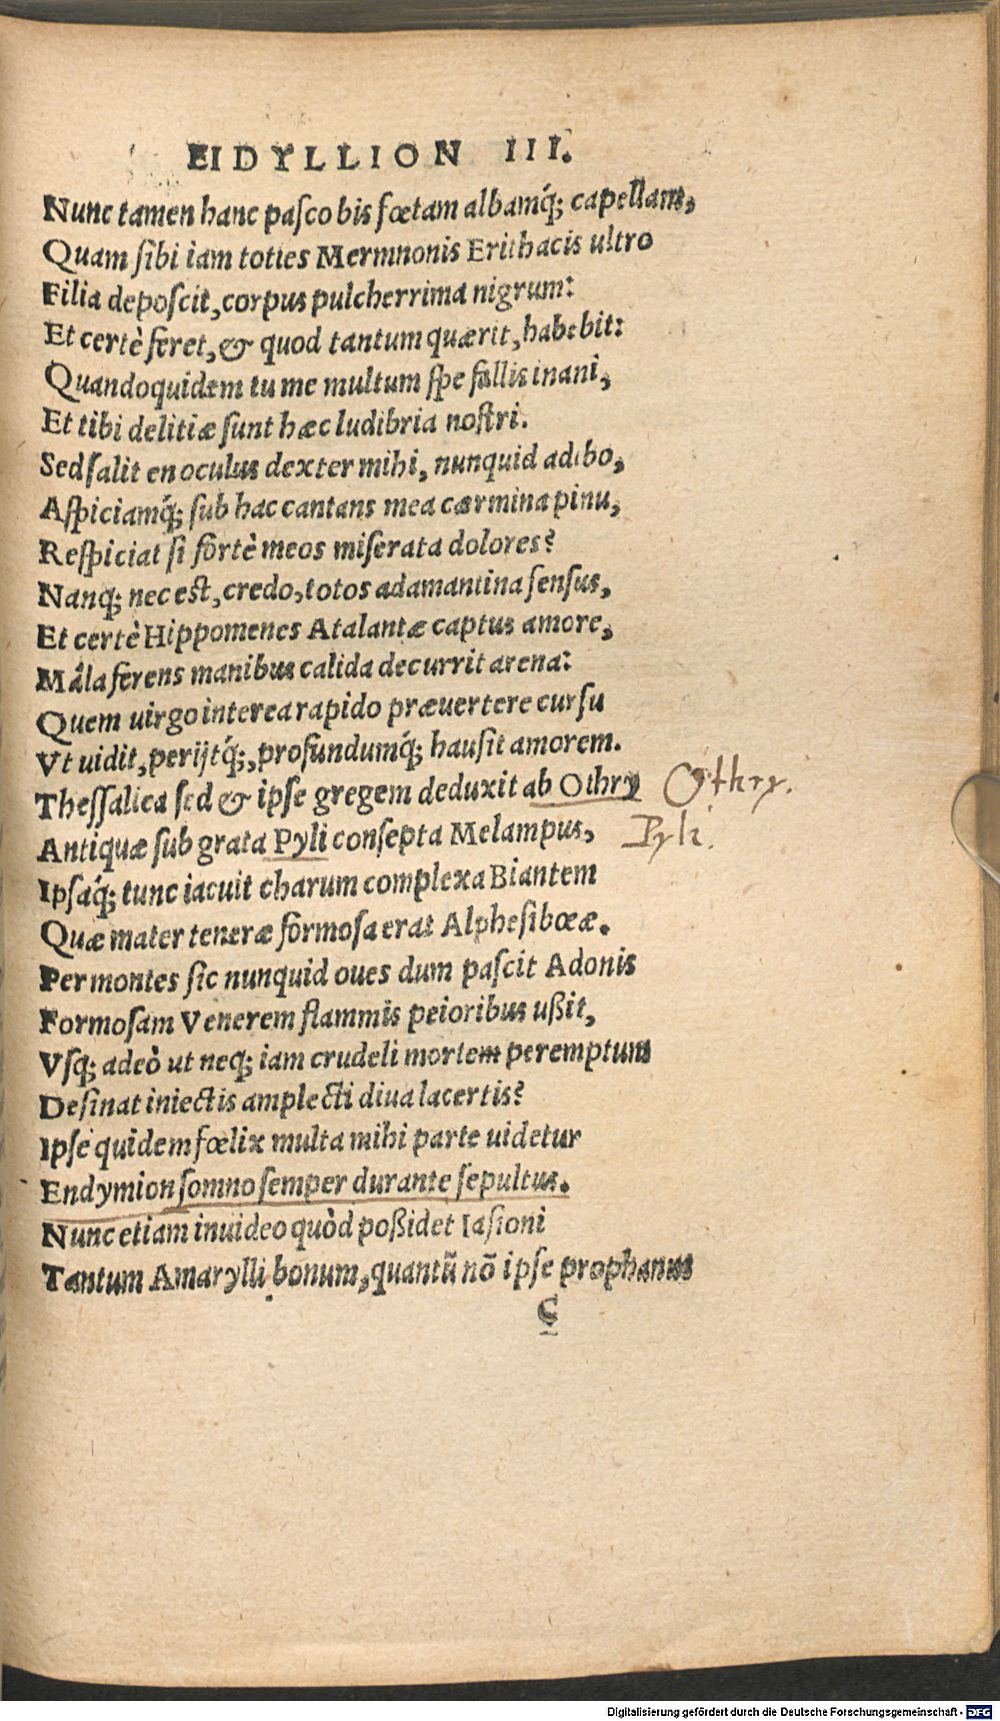 EIDYLLION III.
Nunc tamen hanc pasco bis fœtam albamq́; capellam,
Quam sibi iam toties Mermnonis Erithacis ultro
Filia deposcit, corpus pulcherrima nigrum:
Et certè feret, & quod tantum quærit, habebit:
Quandoquidem tu me multum spe fallis inani,
Et tibi delitiæ sunt hæc ludibria nostri.
Sed salit en oculus dexter mihi, nunquid adibo,
Aspiciamq́; sub hac cantans mea carmina pinu,
Respiciat si fortè meos miserata dolores?
Nanq; nec est, credo, totos adamantina sensus,
Et certè Hippomenes Atalantæ captus amore,
Mâla ferens manibus calida decurrit arena:
Quem uirgo interea rapido præuertere cursu
Vt uidit, perijtq́;, profundumq́; hausit amorem.
Thessalica sed & ipse gregem deduxit ab Othry Othry.
Antiquæ sub grata Pyli consepta Melampus, Pyli.
Ipsaq́; tunc iacuit charum complexa Biantem
Quæ mater teneræ formosa erat Alphesibœæ.
Per montes sic nunquid oues dum pascit Adonis
Formosam Venerem flammis peioribus ußit,
Vsq; adeò ut neq; iam crudeli mortem peremptum
Desinat iniectis amplecti diua lacertis?
Ipse quidem fœlix multa mihi parte uidetur
Endymion somno semper durante sepultus.
Nunc etiam inuideo quòd poßidet Iasioni
Tantum Amarylli bonum, quantũ nõ ipse prophanus
C
Digitalisierung gefördert durch die Deutsche Forschungsgemeinschaft - DFG